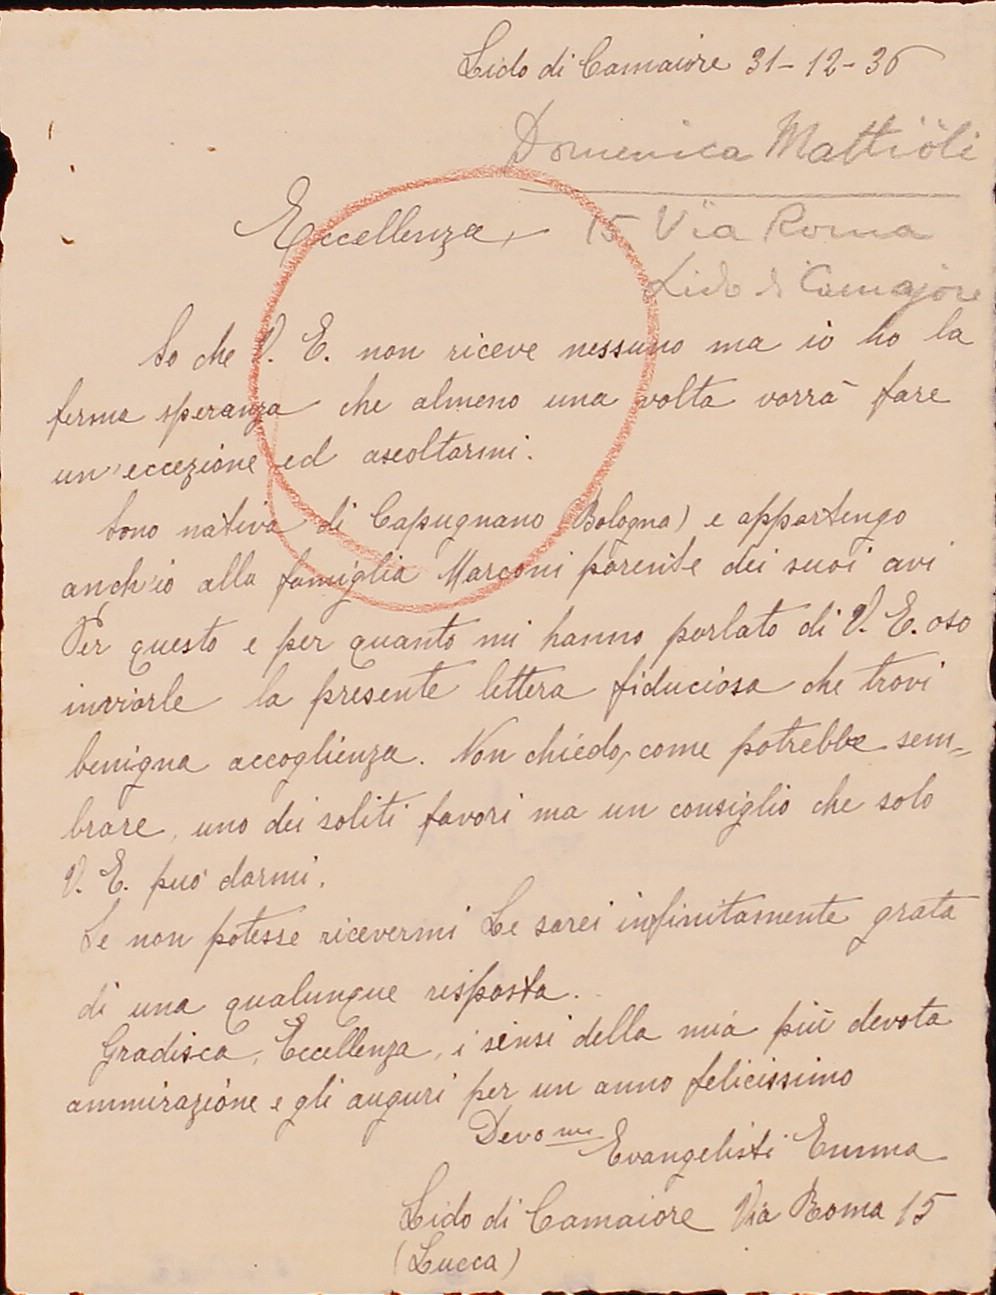 Lido di Camaiore 31-12-36
Domenica Mattioli
Eccellenza,
15 Via Roma
Lido di Camajore
So che V. E. non riceve nessuno ma io ho la
ferma speranza che almeno una volta vorrà fare
un'eccezione ed ascoltarmi.
Sono nativa di Capugnano (Bologna) e appartengo
anch'io alla famiglia Marconi parente dei suoi avi
Per questo e per quanto mi hanno parlato di V. E. oso
inviarle la presente lettera fiduciosa che trovi
benigna accoglienza. Non chiedo, come potrebbe sem-
brare, uno dei soliti favori ma un consiglio che solo
V. E. può darmi.
Se non potesse ricevermi Le sarei infinitamente grata
di una qualunque risposta.
Gradisca, Eccellenza, i sensi della mia più devota
ammirazione e gli auguri per un anno felicissimo
Devo
Evangelisti Emma
Lido di Camaiore Via Roma 15
(Lucca)